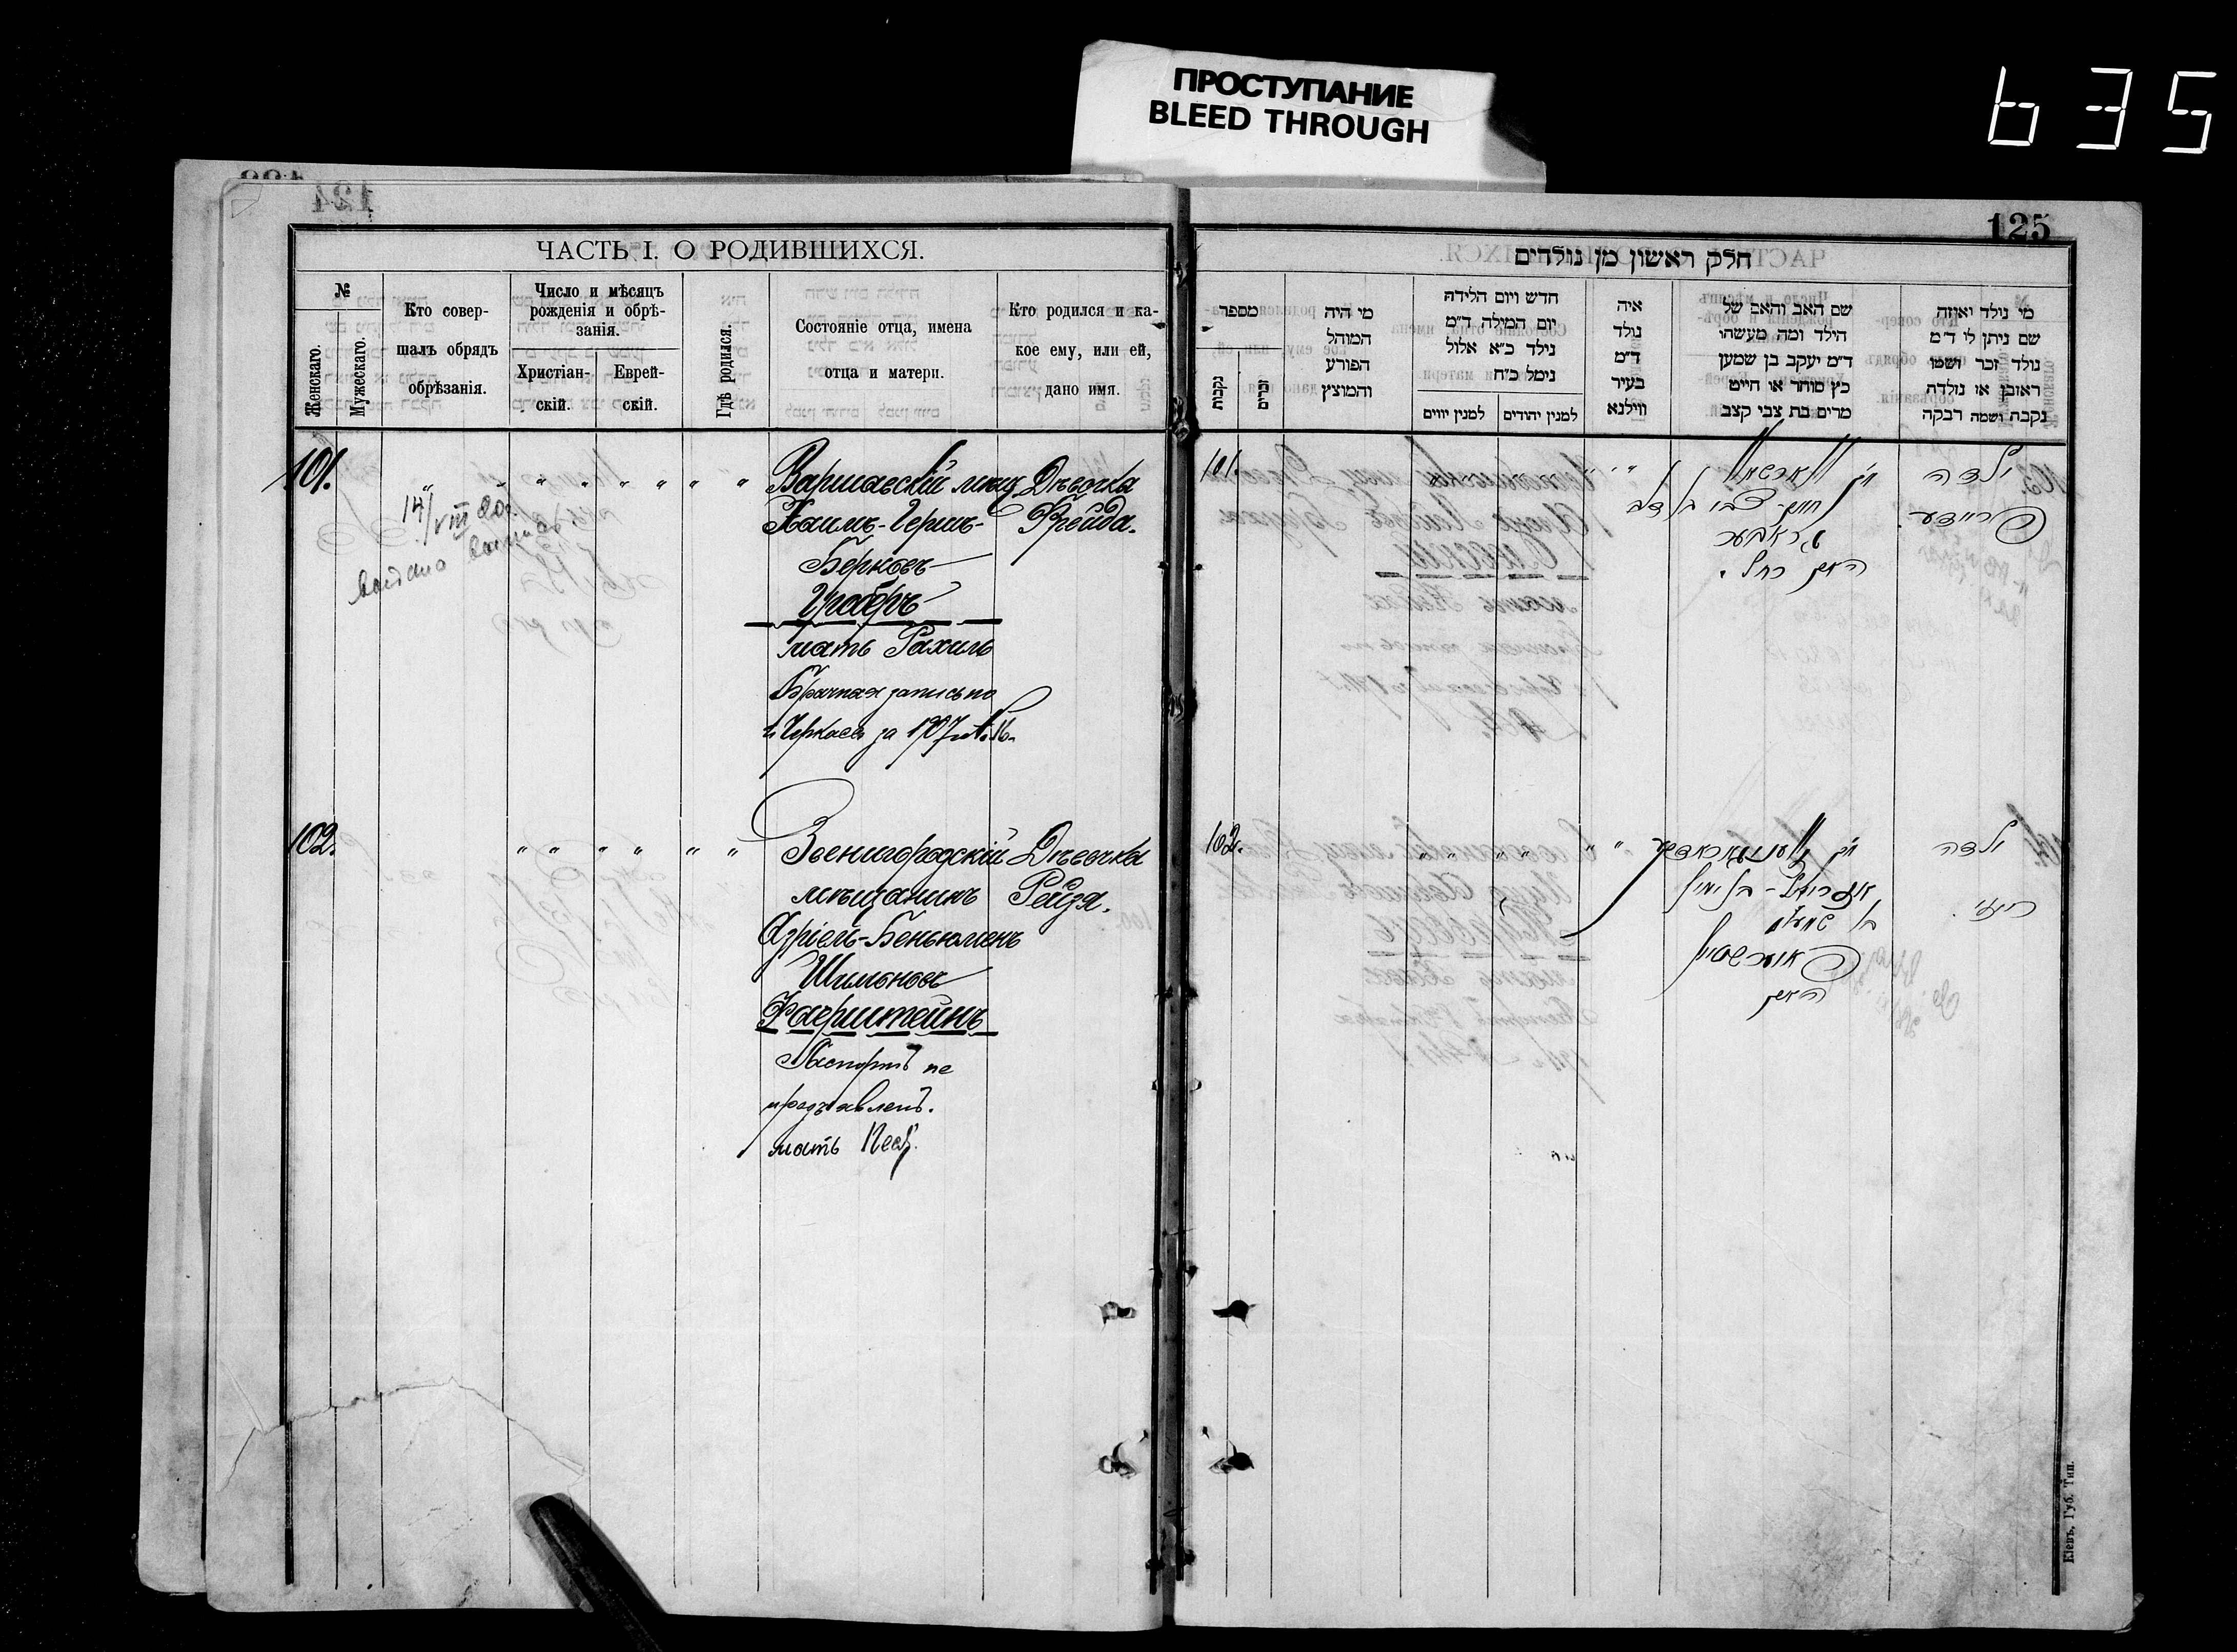 ПРОСТУПАНИЕ
BLEED THROUGH
635
125
ЧАСТЬ I. О РОДИВШИХСЯ.
№
Женскаго.
Мужескаго.
Кто совер-
шалъ обрядъ
обрѣзанія.
Число и мѣсяцъ
рожденія и обрѣ-
занія.
Христіан-
скій.
Еврей-
скій.
Гдѣ родился.
Состояніе отца, имена
отца и матери.
Кто родился и ка-
кое ему, или ей,
дано имя.
101.
14/VIII 20
Варшавскій мѣщ
Хаимъ-Герш-
Берковъ
Граберъ
мать Рахиль
Брачная запись по
г. Черкасы за 1907
Дѣвочка
Фрейда.
102.
Звенигородскій
мѣщанинъ
Азріель-Беньюменъ
Шимоновъ
Фаерштейнъ
Паспортъ не
предъявленъ.
мать
Дѣвочка
Рейзя.
חלק ראשון מן נולדים
מספר
נקבות
זכרים
מי היה
המוהל
הפורע
והמוצץ
חדש ויום הלידה
יום המילה ד״מ
נילד כ״א אלול
נימל כ״ח
למנין יווים
למנין יהודים
איה
נולד
ד״מ
בעיר
ווילנא
שם האב והאם של
הילד ומה מעשהו
ד״מ יעקב בן שמען
כץ סוחר או חייט
מרים בת צבי קצב
מי נולד ואיזה
שם ניתן לו ד״מ
נולד זכר ושמו
ראובן או נולדת
נקבה ושמה רבקה
101.
ילדה
פריידע.
גראבער
האם רחל.
102.
ילדה
רייזי.
עזריאל-בנימין
בן שמעון
פאערשטיין
האם
Кіевъ, Губ. Тип.